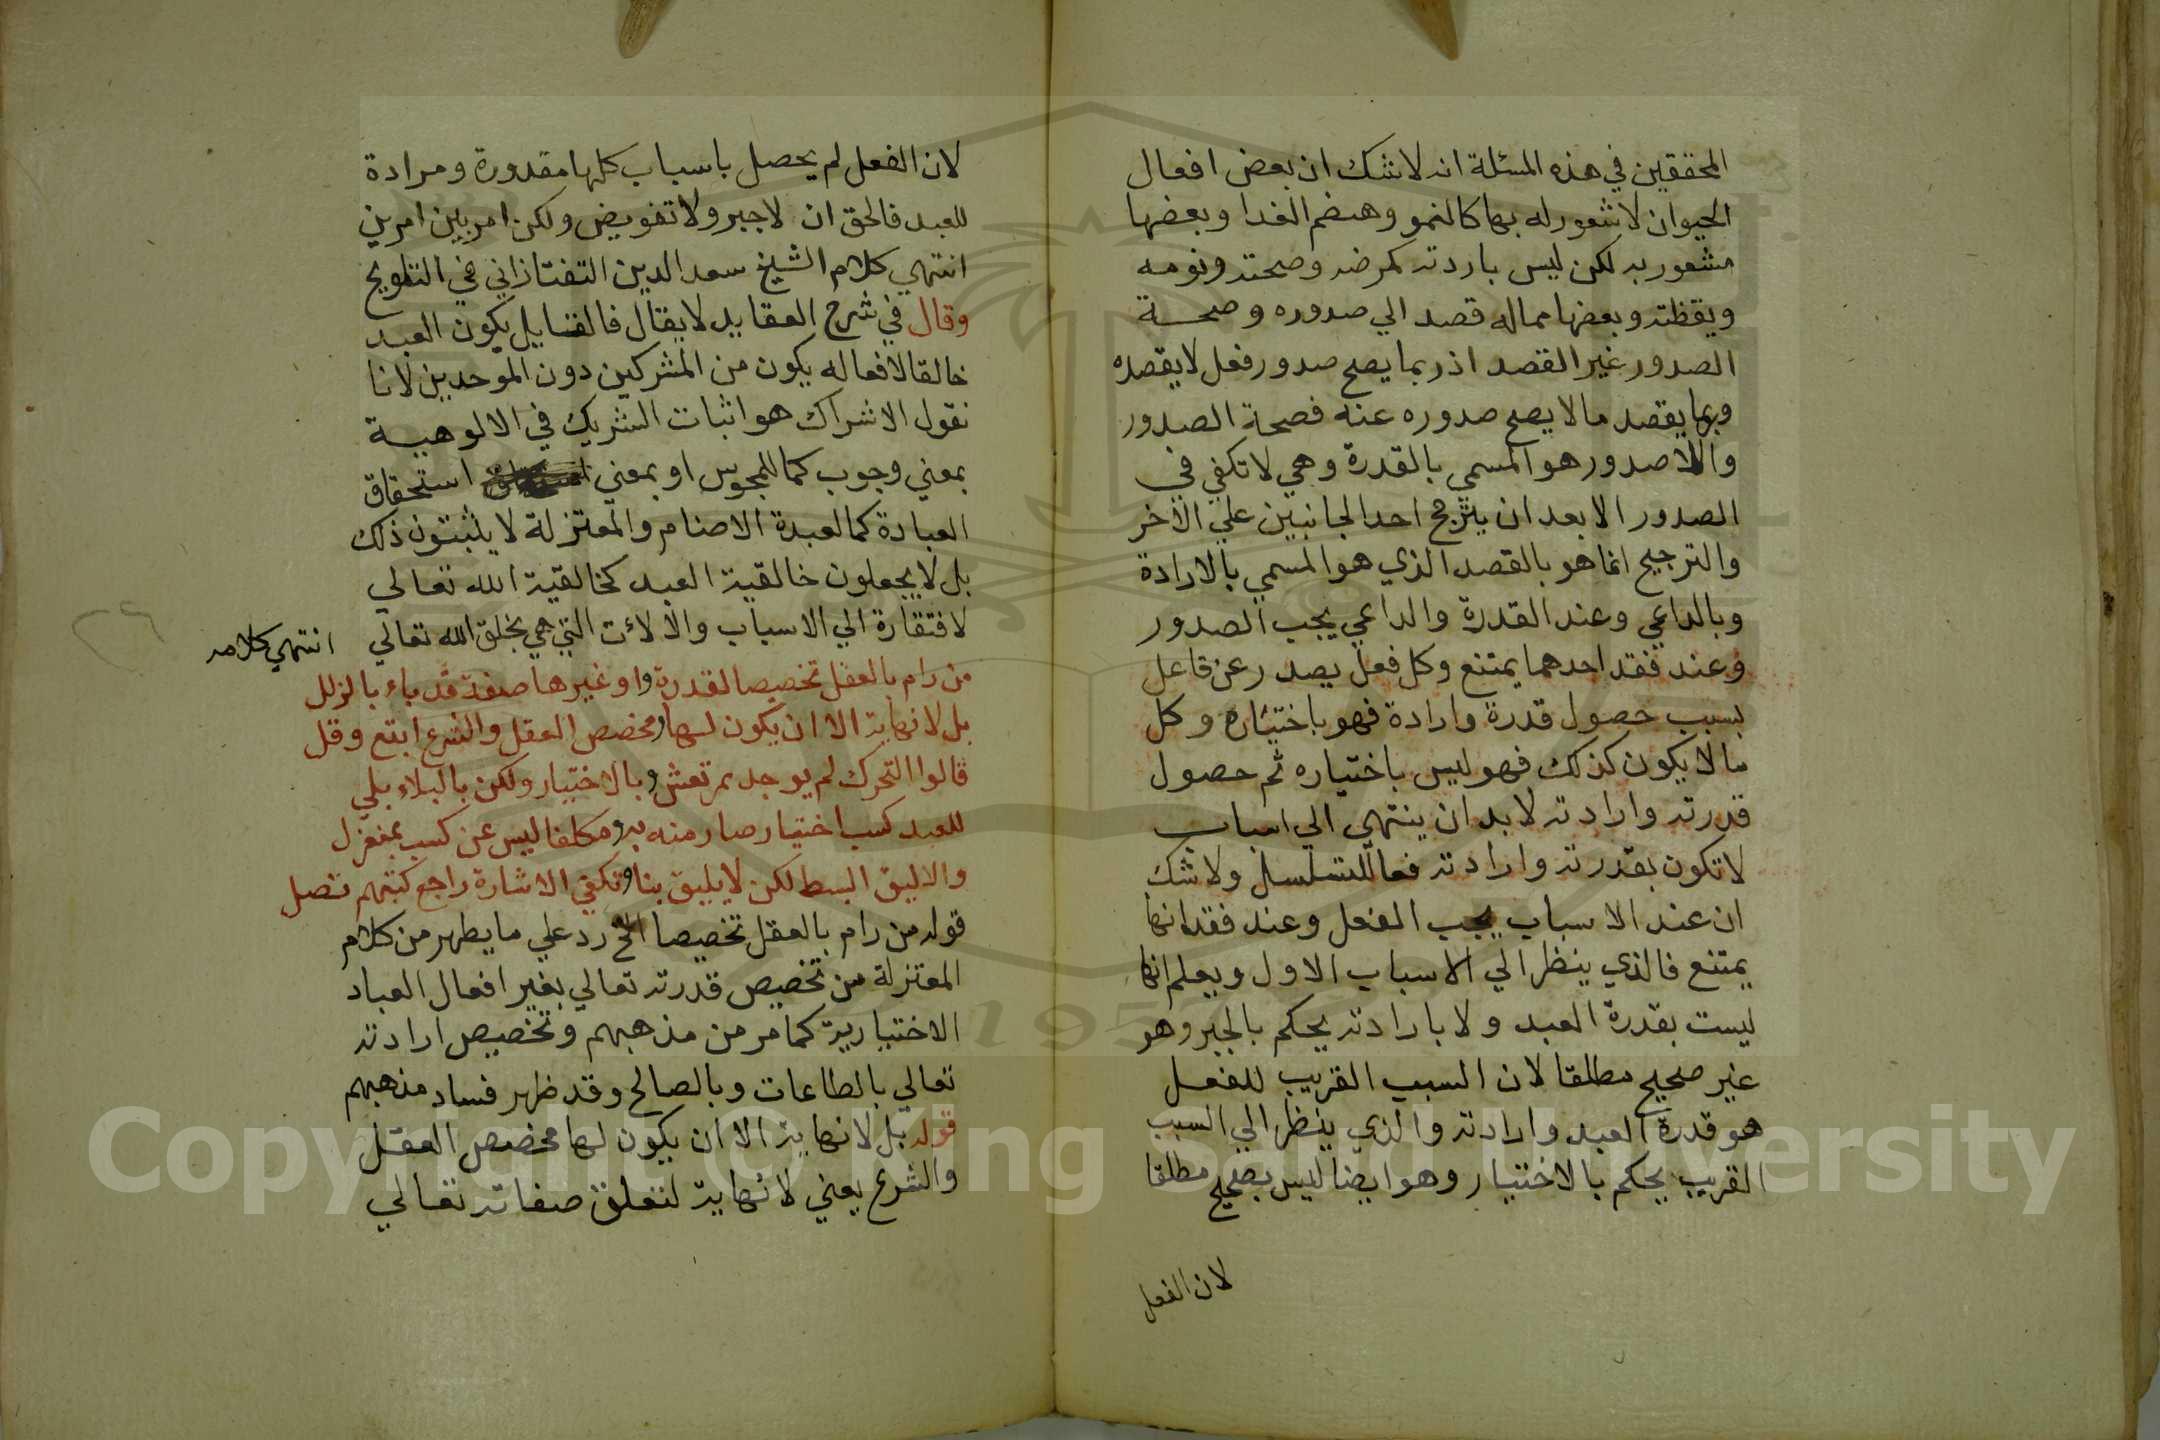 المحققين في هذه المسئلة انه لاشك ان بعض افعال
الحيوان لاشعور له بها كالنمو وهضم الغدا وبعضها
مشعور به لكن ليس باردته كمرضه وصحته ونومه
ويقظته وبعضها مماله قصد الي صدوره وصحة
الصدور غير القصد اذ ربما يصح صدور فعل لايقصده
وربما يقصد مالا يصح صدوره عنه فصحة الصدور
واللاصدور هو المسمي بالقدرة وهي لا تكفي في
الصدور الا بعد ان يترجح احد الجانبين علي الاخر
والترجيح انما هو بالقصد الذي هو المسمي بالارادة
وبالداعي وعند القدرة والداعي يجب الصدور
وعند فقد احدهما يمتنع وكل فعل يصدر عن فاعل
بسبب حصول قدرة وارادة فهو باختياره وكل
مالا يكون كذلك فهو ليس باختياره ثم حصول
قدرته وارادته لابد ان ينتهي الي اسباب
لاتكون بقدرته وارادته للتسلسل ولاشك
ان عند الاسباب يجب الفعل وعند فقدانها
يمتنع فالذي ينظر الي الاسباب الاول ويعلم انها
ليست بقدرة العبد ولا بارادته يحكم بالجبر وهو
غير صحيح مطلقا لان السبب القريب للفعل
هو قدرة العبد وارادته والذي ينظر الي السبب
القريب يحكم بالاختيار وهو ايضا ليس بصحيح مطلقا
لان الفعل
لان الفعل لم يحصل باسباب كلها مقدورة ومرادة
للعبد فالحق ان لاجبر ولا تفويض ولكن امر بين امرين
انتهي كلام الشيخ سعد الدين التفتازاني في التلويح
وقال في شرح العقايد لايقال فالقايل يكون العبد
خالقا لافعاله يكون من المشركين دون الموحدين لانا
نقول الاشراك هو اثبات الشريك في الالوهية
بمعني وجوب كما للمجوس او بمعني استحقاق
العبادة كما لعبدة الاصنام والمعتزلة لا يثبتون ذلك
بل لا يجعلون خالقية العبد كخالقية الله تعالي
لافتقاره الي الاسباب والالات التي هي بخلق الله تعالي
انتهي كلامه
من رام بالعقل تخصيصا لقدرة او غيرها صفة قد باء بالزلل
بل لانهاية الا ان يكون لها مخصص العقل والشرع ابتع وقل
قالوا التحرك لم يوجد بمرتعش وبالاختيار ولكن بالبلاء بلي
للعبد كسب اختيار صار منه به ومكلفا ليس عن كسب بمنعزل
والاليق البسط لكن لايليق بنا وتكفي الاشارة راجع كتبهم تصل
قوله من رام بالعقل تخصيصا الخ رد علي ما يظهر من كلام
المعتزلة من تخصيص قدرته تعالي بغير افعال العباد
الاختيارية كما مر من مذهبهم وتخصيص ارادته
تعالي بالطاعات وبالصالح وقد ظهر فساد مذهبهم
قوله بل لانهاية الا ان يكون لها مخصص العقل
والشرع يعني لانهاية لتعلق صفاته تعالي
Copyright © King Saud University
1957